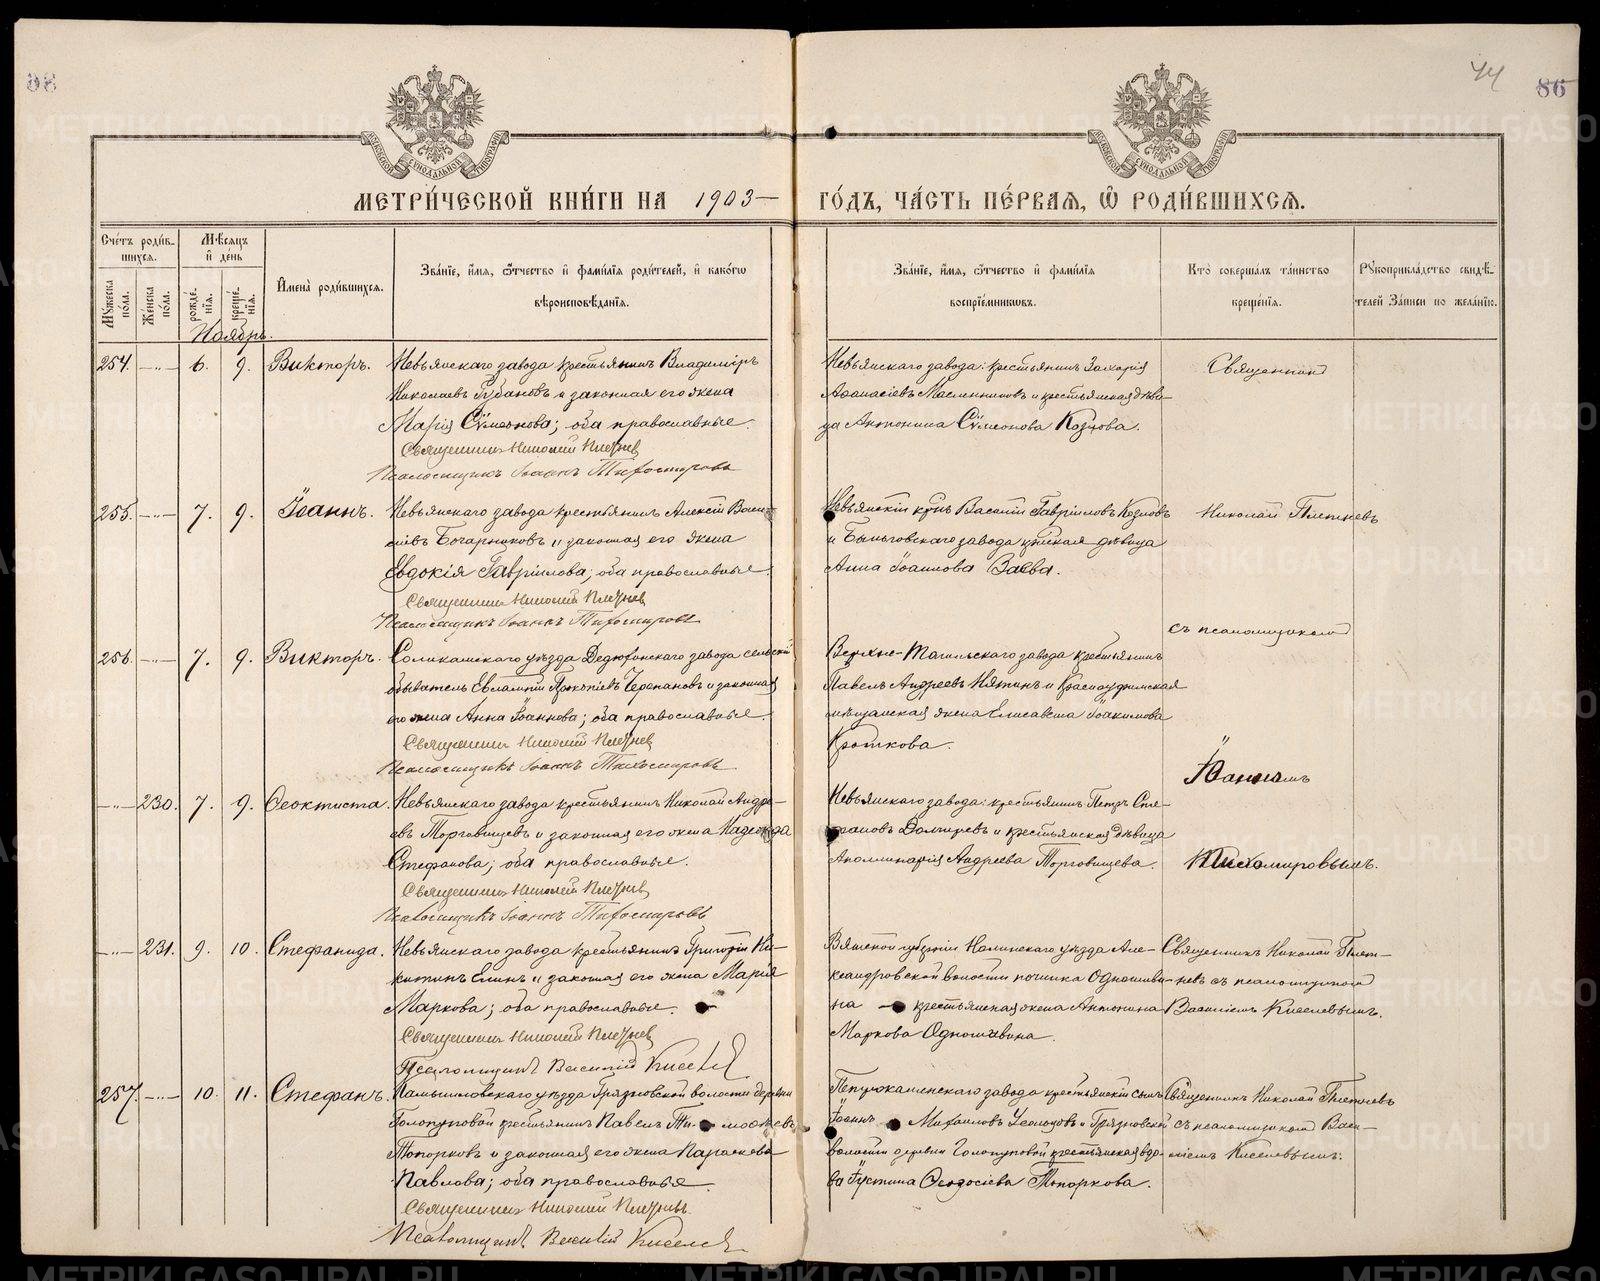 98
44
86
МОСКОВСКОЙ СѴНОДАЛЬНОЙ ТИПОГРАФІИ
МОСКОВСКОЙ СѴНОДАЛЬНОЙ ТИПОГРАФІИ
МЕТРИ́ЧЕСКОЙ КНИ́ГИ НА 1903 — ГО́ДЪ, ЧА́СТЬ ПЕ́РВАЯ, Ѡ҆ РОДИ́ВШИХСЯ.
Сче́тъ роди́в-
шихся.
Мѣ́сяцъ
и҆ де́нь
Мꙋ́жеска по́ла.
Же́нска по́ла.
рожде́-
нїя.
креще́-
нїя.
И҆мена̀ роди́вшихся.
Зва́нїе, и҆́мя, ѻ҆́тчество и҆ фами́лїя роди́телей, и҆ како́гѡ
вѣроисповѣ́данїя.
Зва́нїе, и҆́мя, ѻ҆́тчество и҆ фами́лїя
воспрїе́мниковъ.
Кто̀ соверша́лъ та́инство
креще́нїя.
Рꙋкоприкла́дство свидѣ́-
телей за́писи по жела́нїю.
Ноябрь.
254. —"— 6. 9. Викторъ. Невьянскаго завода крестьянинъ Владиміръ
Николаевъ Губановъ и законная его жена
Марія Сѵмеонова; оба православные.
Священникъ Николай Плетневъ
Псаломщикъ Іоаннъ Тихомировъ
Невьянскаго завода: крестьянинъ Захарія
Аѳанасіевъ Масленниковъ и крестьянская дѣви-
ца Антонина Сѵмеонова Козлова.
Священник
255. —"— 7. 9. Іоаннъ. Невьянскаго завода крестьянинъ Алексій Васи-
ліевъ Бочарниковъ и законная его жена
Евдокія Гавріилова; оба православные.
Священникъ Николай Плетнев
Псаломщикъ Іоаннъ Тихомировъ
Невьянскій кр-нъ Василій Гавріиловъ Козловъ
и Быньговскаго завода кр-нская дѣвица
Анна Іоаннова Заева.
Николай Плетневъ
съ псаломщикомъ
256. —"— 7. 9. Викторъ. Соликамскаго уѣзда Дедюхинскаго завода сельскій
обыватель Евлампій Прокопіевъ Черепановъ и законная
его жена Анна Іоаннова; оба православные.
Священникъ Николай Плетнев
Псаломщикъ Іоаннъ Тихомировъ
Верхне-Тагильскаго завода крестьянинъ
Павелъ Андреевъ Нятинъ и Красноуфимская
мѣщанская жена Елисавета Іоакимова
Кроткова.
Іоанномъ
—"— 230. 7. 9. Ѳеоктиста. Невьянскаго завода крестьянинъ Николай Андре-
евъ Торговищевъ и законная его жена Надежда
Стефанова; оба православные.
Священникъ Николай Плетнев
Псаломщикъ Іоаннъ Тихомировъ
Невьянскаго завода: крестьянинъ Петръ Сте-
фановъ Долгиревъ и крестьянская дѣвица
Аполлинарія Андреева Торговищева.
Тихомировымъ.
—"— 231. 9. 10. Стефанида. Невьянскаго завода крестьянинъ Григорій Ни-
китинъ Елинъ и законная его жена Марія
Маркова; оба православные.
Священникъ Николай Плетнев
Псаломщикъ Василій Киселев
Вятской губерніи Нолинскаго уѣзда Але-
ксандровской волости починка Одношиви-
на — крестьянская жена Антонина
Маркова Одношивина.
Священникъ Николай Плет-
невъ съ псаломщикомъ
Василіемъ Киселевымъ.
257. —"— 10. 11. Стефанъ. Камышловскаго уѣзда Грязновской волости деревни
Голопуповой крестьянинъ Павелъ Ти- моѳеевъ
Топорковъ и законная его жена Параскева
Павлова; оба православные.
Священникъ Николай Плетневъ.
Псаломщикъ Василій Киселев
Петрокаменскаго завода крестьянскій сынъ
Іоаннъ Михаиловъ и Грязновской
волости деревни Голопуповой крестьянская вдо-
ва Іустина Ѳеодосіева Топоркова.
Священникъ Николай Плетневъ
съ псаломщикомъ Васи-
ліемъ Киселевымъ.
METRIKI.GASO-URAL.RU